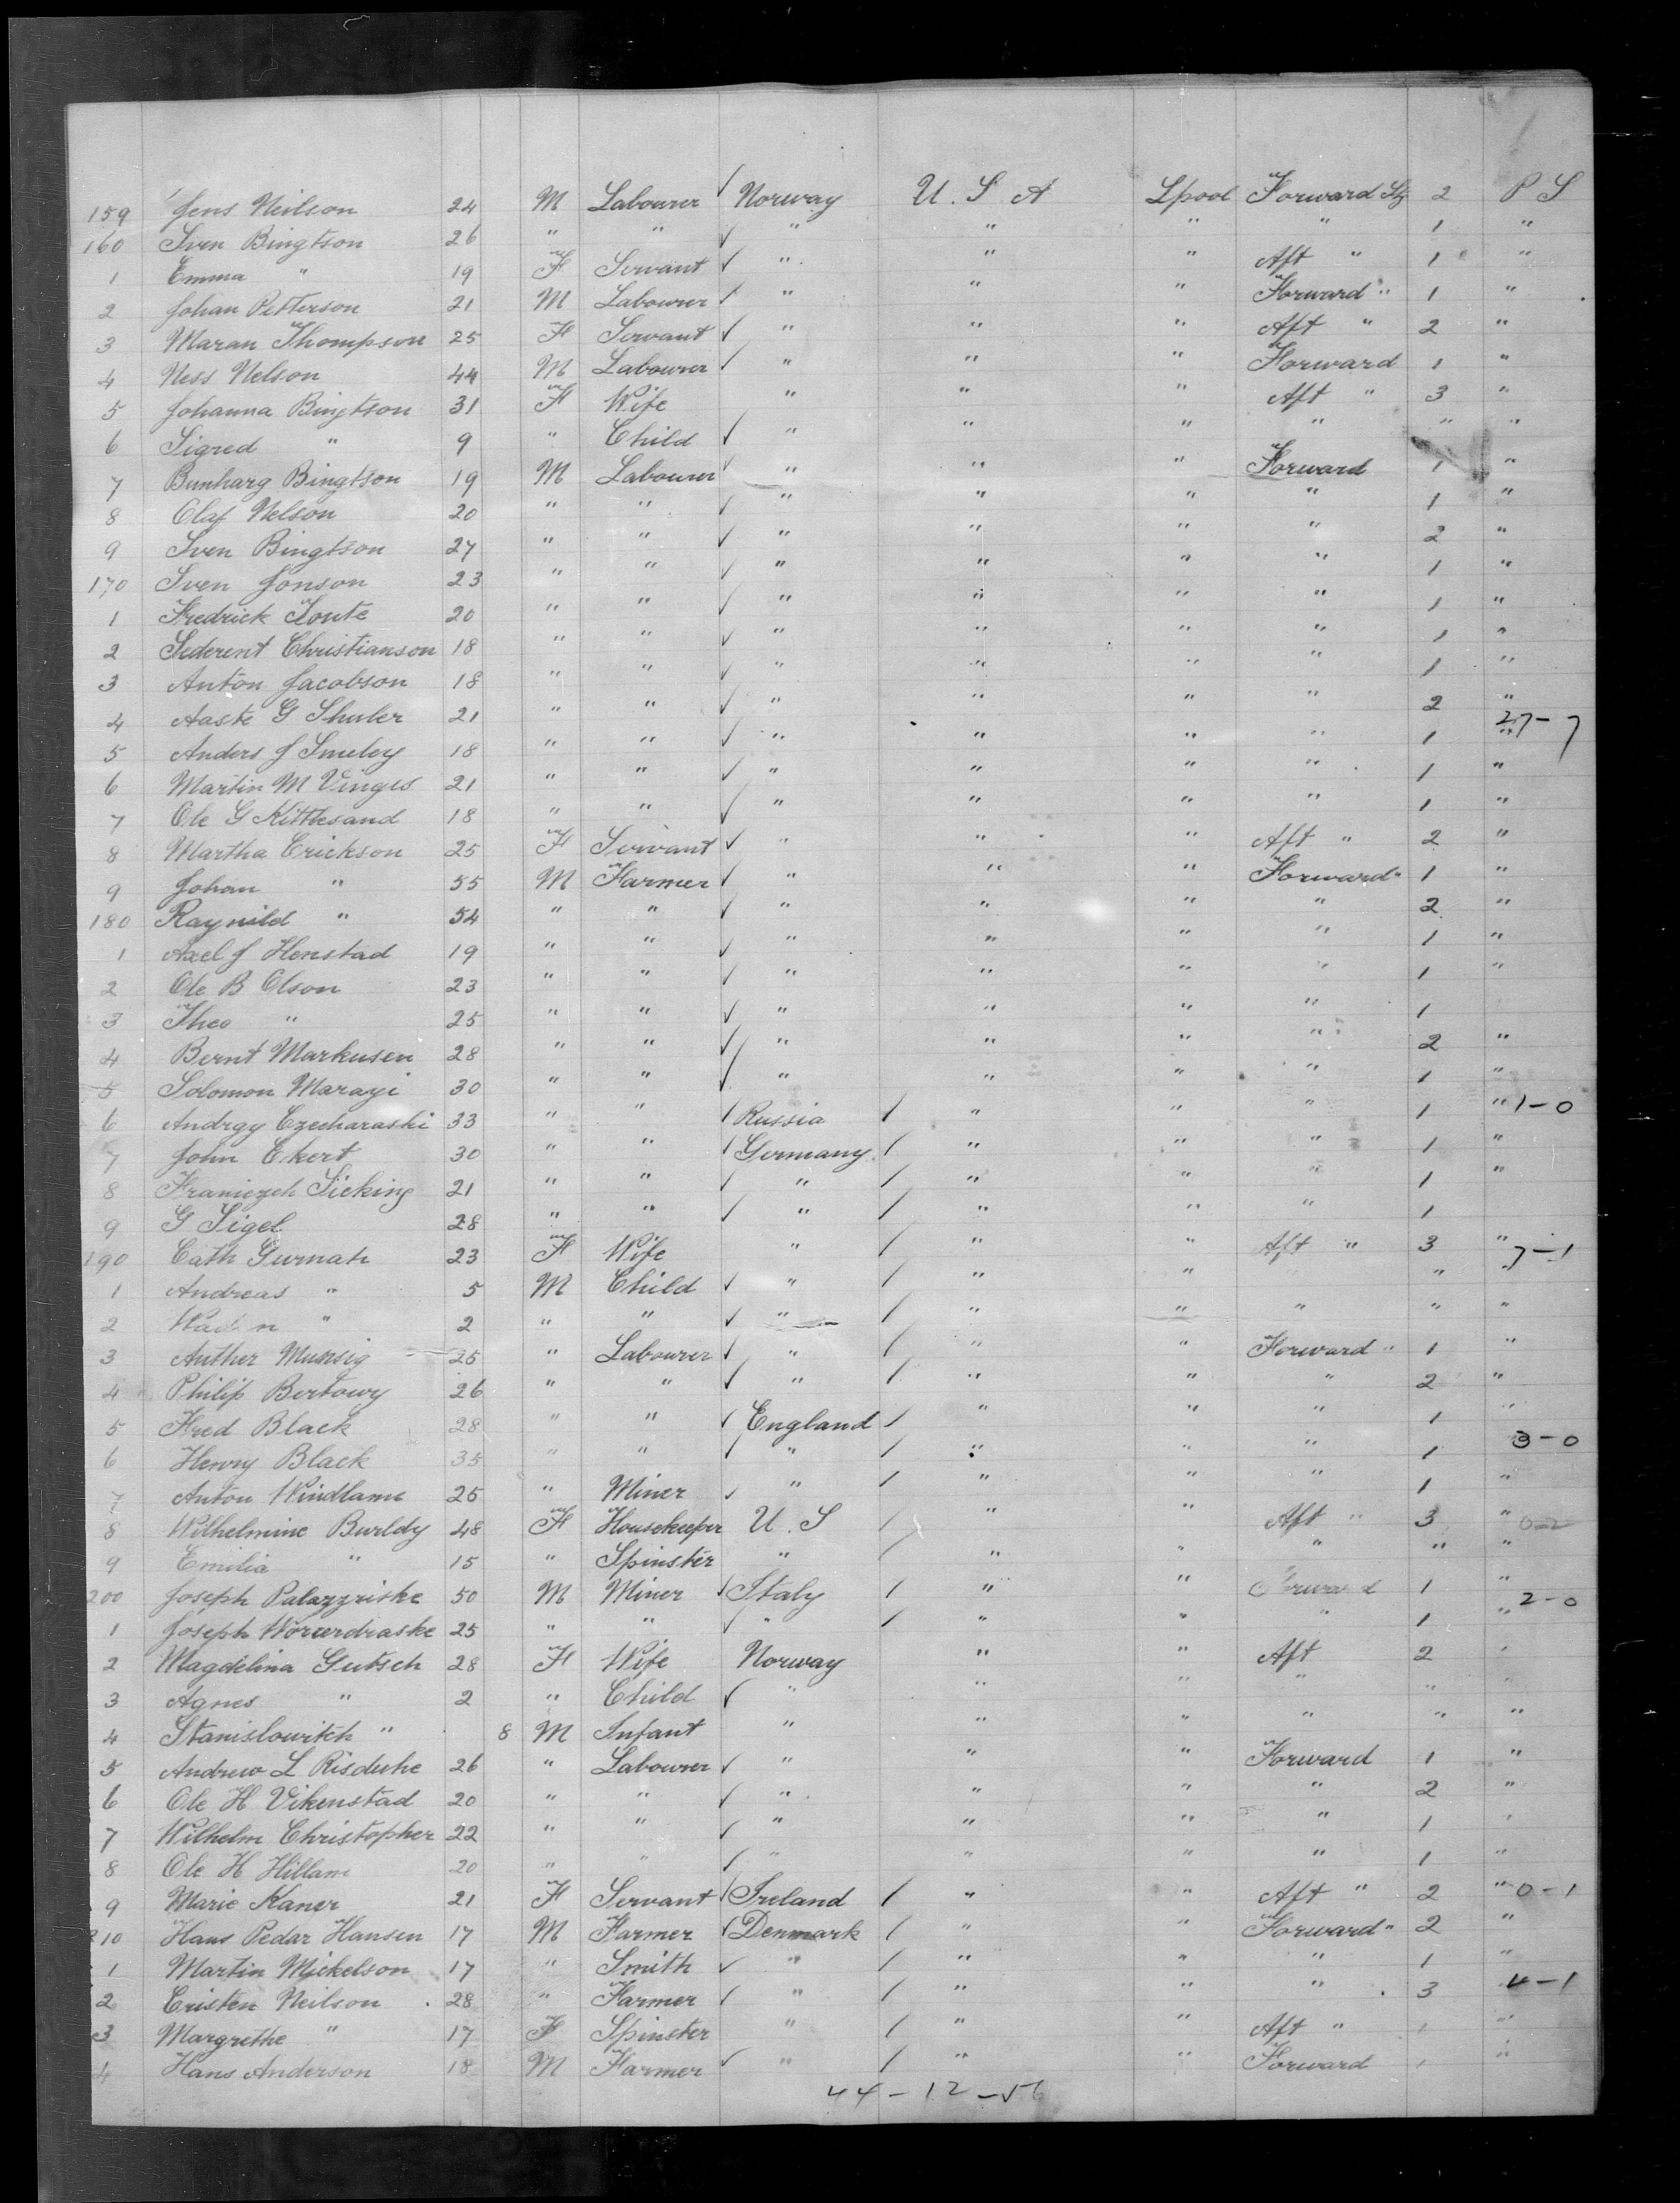 159 Jens Neilson 24 M Labourer ✓ Norway U. S A Lpool Forward Stg 2 P S
160 Sven Bingtson 26 " " ✓ " " " " 1 "
1 Emma " 19 F Servant ✓ " " " Aft " 1 "
2 Johan Petterson 21 M Labourer ✓ " " " Forward " 1 "
3 Maran Thompson 25 F Servant ✓ " " " Aft " 2 "
4 Ness Nelson 44 M Labourer ✓ " " " Forward 1 "
5 Johanna Bingtson 31 F Wife " " " Aft " 3 "
6 Sigred " 9 " Child ✓ " " " " " "
7 Bunharg Bingtson 19 M Labourer ✓ " " " Forward 1 "
8 Olaf Nelson 20 " " ✓ " " " " 1 "
9 Sven Bingtson 27 " " ✓ " " " " 2 "
170 Sven Jonson 23 " " ✓ " " " " 1 "
1 Fredrick Tonte 20 " " ✓ " " " " 1 "
2 Sederent Christianson 18 " " ✓ " " " " 1 "
3 Anton Jacobson 18 " " ✓ " " " " 1 "
4 Aaste G Shuler 21 " " ✓ " " " " 2 "
5 Anders J Smeley 18 " " ✓ " " " " 1 " 27-7
6 Martin M Vinges 21 " " ✓ " " " " 1 "
7 Ole G Kittlesand 18 " " ✓ " " " " 1 "
8 Martha Erickson 25 F Servant ✓ " " " Aft " 2 "
9 Johan " 55 M Farmer ✓ " " " Forward " 1 "
180 Raynild " 54 " " ✓ " " " " 2 "
1 Axel J Henstad 19 " " ✓ " " " " 1 "
2 Ole B Olson 23 " " ✓ " " " " 1 "
3 Theo " 25 " " ✓ " " " " 1
4 Bernt Markusen 28 " " ✓ " " " " 2 "
5 Solomon Marayi 30 " " ✓ " " " " 1 "
6 Andrgy Czecharaski 33 " " / Russia / " " " 1 " 1-0
7 John Ekert 30 " " / Germany / " " " 1 "
8 Franiezch Sicking 21 " " / " / " " " 1 "
9 G Sigel 28 " " ✓ " / " " " 1
190 Cath Gurnah 23 F Wife " / " " Aft " 3 " 7-1
1 Andreas " 5 M Child ✓ " / " " "
2 " 2 " " ✓ " / " " " " "
3 Anther Munsig 25 " Labourer ✓ " / " " Forward " 1 "
4 Philip Bertowy 26 " " ✓ " / " " " 2 "
5 Fred Black 28 " " ✓ England / " " " 1 "
6 Henry Black 35 " " ✓ " / " " " 1 3-0
7 Anton Windlame 25 " Miner ✓ " / " " " 1 "
8 Wilhelmine Burldy 48 F Housekeeper U. S / " " Aft " 3 " 0-2
9 Emilia " 15 " Spinster " / " " " " "
200 Joseph Palazzriske 50 M Miner ✓ Italy / " " Forward 1 "
1 Joseph Worcerdraske 25 " " ✓ " / " " " 1 " 2-0
2 Magdelina Gutsch 28 F Wife Norway " " Aft 2 "
3 Agnes " 2 " Child ✓ " " " " " "
4 Stanislowitch " 8 M Infant " " " " " "
5 Andrew L Risduhe 26 " Labourer ✓ " " " Forward 1 "
6 Ole H Vikenstad 20 " " ✓ " " " " 2 "
7 Wilhelm Christopher 22 " " ✓ " " " " 1 "
8 Ole H Hillam 20 " " ✓ " " " " 1 "
9 Marie Kaner 21 F Servant / Ireland / " " Aft " 2 " 0-1
210 Hans Pedar Hansen 17 M Farmer ✓ Denmark / " " Forward " 2 "
1 Martin Mickelson 17 " Smith ✓ " / " " " 1 "
2 Cristen Neilson 28 " Farmer ✓ " / " " " 3 4-1
3 Margrethe " 17 F Spinster " / " " Aft " "
4 Hans Anderson 18 M Farmer ✓ " / " " Forward "
44-12-56